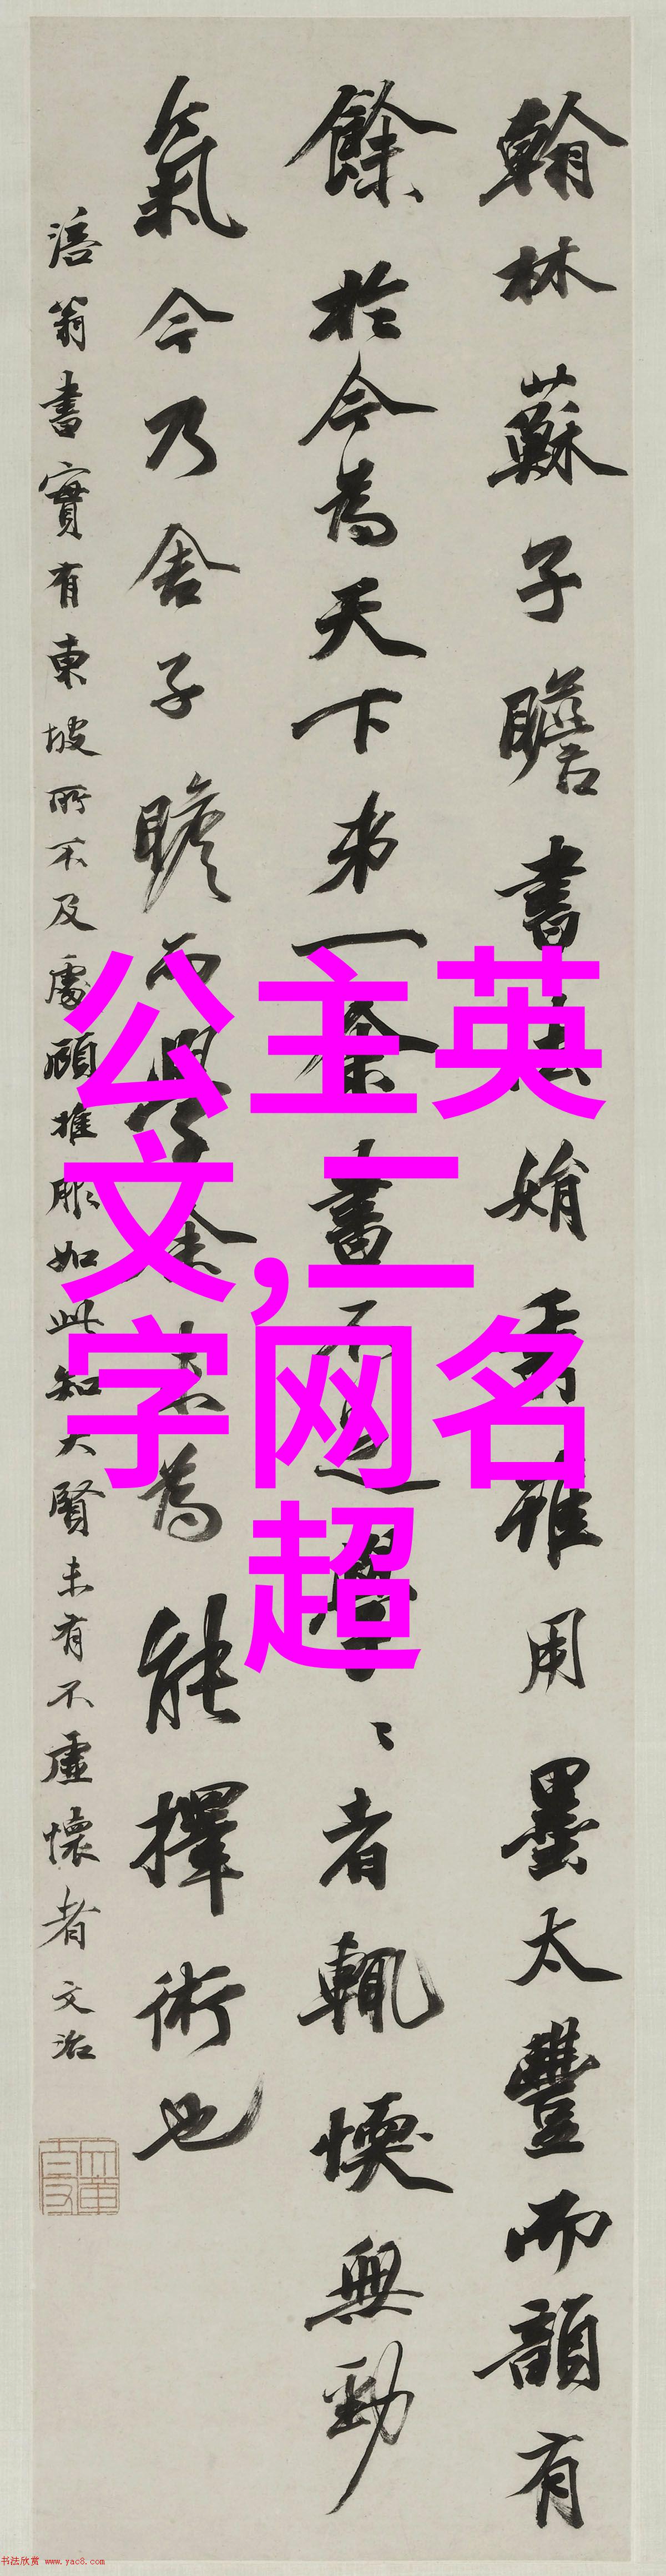 翰林蘇子瞻書法娟秀雖用墨太豐而韻有
餘於今為天下弟一余書不足學〻者輒愞無勁
氣今乃舍子瞻而學余未為能擇術也
涪翁書實有東坡所不及處顧推服如此知大賢未有不虛懷者文治
公主英
文,二
字网名
超
书法欣赏 www.yac8.com